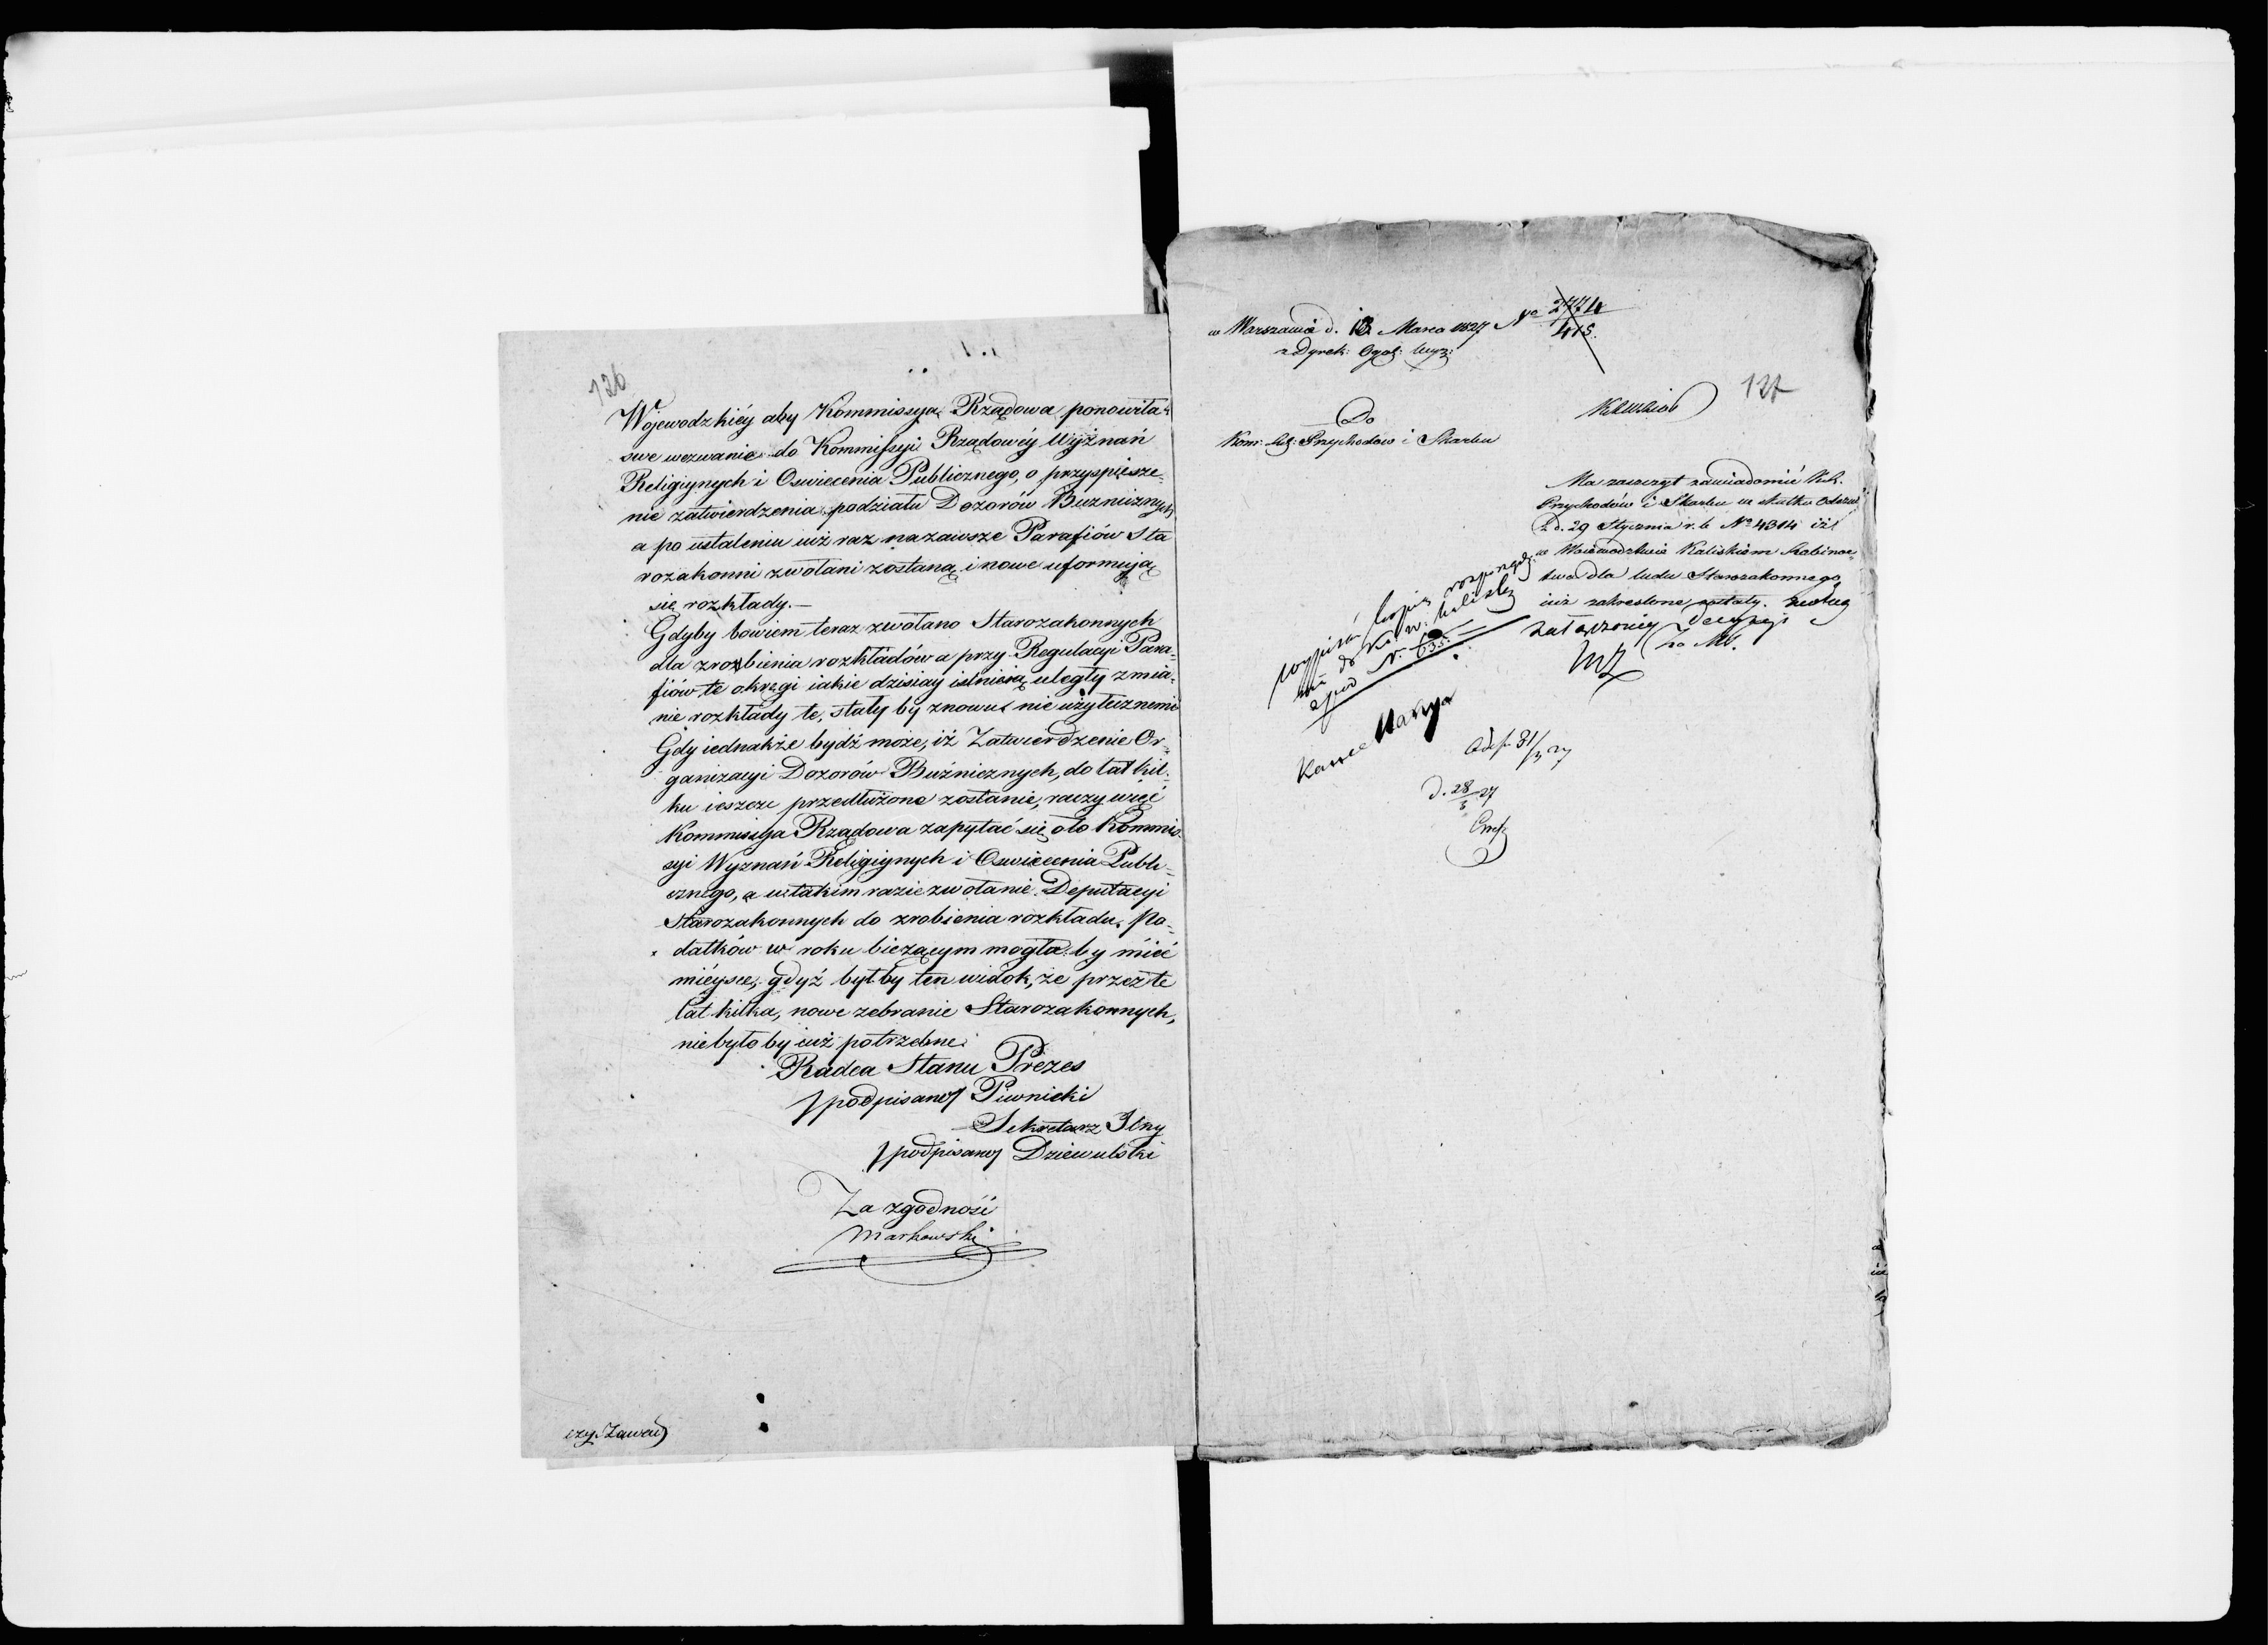 126
Wojewodzkiéy aby Kommissya Rządowa ponowiła
swe wezwanie do Kommissyi Rządowéy Wyznań
Religiynych i Oswiecenia Publicznego, o przyspiesze-
nie zatwierdzenia podziału Dozorów Buzniznych
a po ustaleniu iuż raz nazawsze Parafiów Sta
rozakonni zwołani zostaną i nowe uformują
się rozkłady.—
Gdyby bowiem teraz zwołano Starozakonnych
dla zrobienia rozkładów a przy Regulacyi Para-
fiów te okręgi iakie dzisiay istnieią uległy zmia-
nie rozkłady te, stały by znowu nie użytecznemi
Gdy iednakże bydź może, iż Zatwierdzenie Or-
ganizacyi Dozorów Buźnicznych, do lat kil-
ku ieszcze przedłużone zostanie, raczy więc
Kommissya Rządowa zapytać się oto Kommis-
syi Wyznań Religiynych i Oswiecenia Publi-
cznego, a w takim razie zwołanie Deputacyi
Starozakonnych do zrobienia rozkładu Po-
datków w roku bieżącym mogła by mieć
mieysce, gdyż byłby ten widok, że przez te
lat kilka, nowe zebranie Starozakonnych,
niebyło by iuż potrzebne.
Radca Stanu Prezes
/podpisano/ Piwnicki
Sekretarz Jlny
/podpisano/ Dziewulski
Za zgodność
Markowski
w Warszawie d. Marca 1827 No 2774
415.
z Dyrek: Ogol: Wyz:
127
Do
Kom: Rz: Przychodow i Skarbu
Ma zaszczyt zawiadomić K.R.
Przychodów i Skarbu w skutku odezw
z d. 29 Stycznia r. b. No 4314 iż
w Woiewodztwie Kaliskiem Rabinac-
twa dla ludu Starozakonnego
iuż zakreslone zostały. według
załączoney Decyzyi
wypisać kopię
do K. W. Kalisk
pod N. 635.
31/3 27
d. 28/3 27